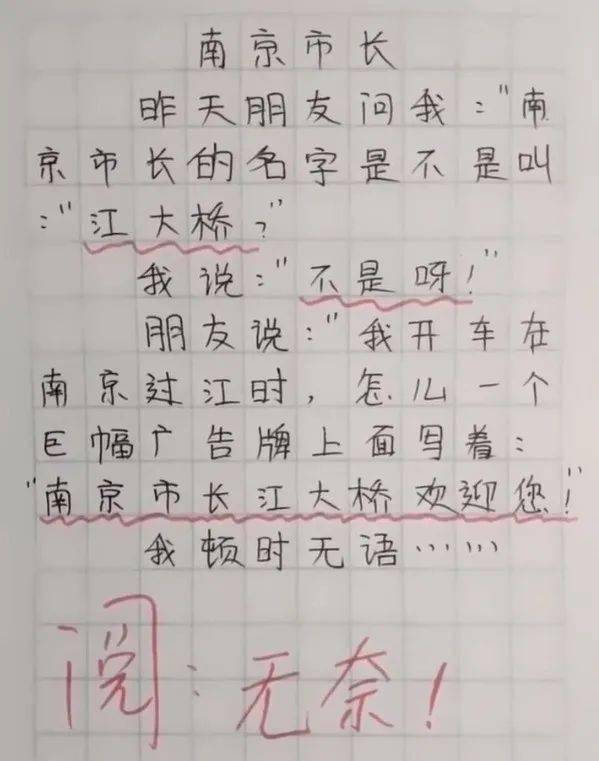 南京市长
昨天朋友问我："南
京市长的名字是不是叫
："江大桥？"
我说："不是呀！"
朋友说："我开车在
南京过江时，怎么一个
巨幅广告牌上面写着：
"南京市长江大桥欢迎您！"
我顿时无语……
阅：无奈！